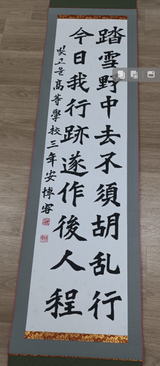 踏雪野中去不須胡乱行
今日我行跡遂作後人程
高等學校三年安博容